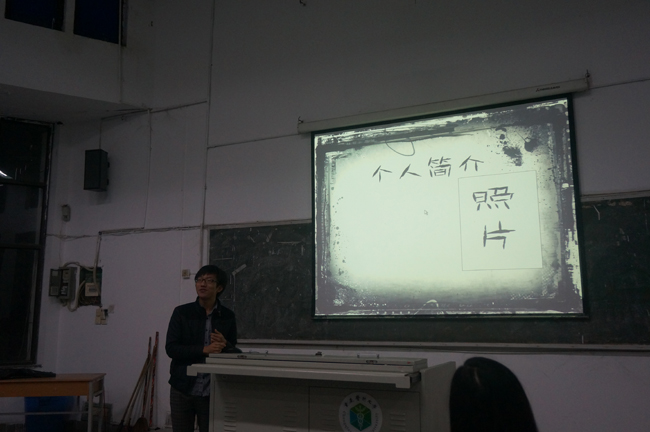 个人简介
照
片